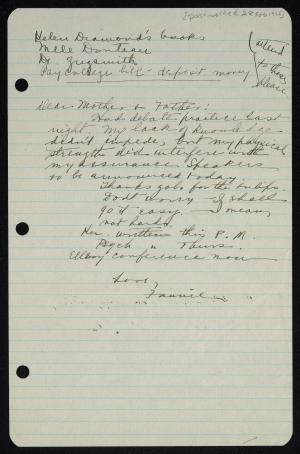 [postmarked 28 Feb 1912]
Helen Dramond's books
Mlle Donteau
Dr. Zugsmith
Pay college bill - deposit money
attend
to these
please
Dear Mother & Father:
Had debate practice last
night. My lack of knowledge
didn't impede, but my physical
strength did interfere with
my assurance. Speakers
to be announced today.
Thanks gobs for the tulips.
Don't worry I shall
go it easy. I mean,
not hard.
His. written this P.M.
Psych " Thurs.
Ellery conference now
Love,
Fannie